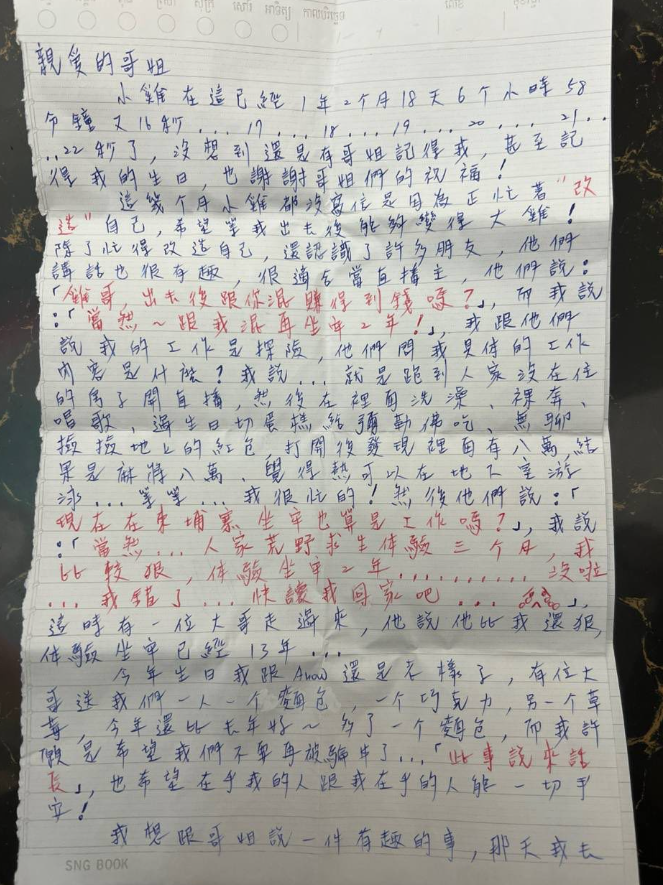 សុក្រ សៅរ៍ អាទិត្យ កាលបរិច្ឆេទ
親愛的哥姐
小雞在這已經1年2個月18天6個小時58
分鐘又16秒...17...18...19...20...21...
...22秒了,沒想到還是有哥姐記得我,甚至記
得我的生日,也謝謝哥姐們的祝福!
這幾個月小雞都沒寫信是因為正忙著"改
造"自己,希望等我出去後能夠變得大雞!
除了忙得改造自己,還認識了許多朋友,他們
講話也很有趣,很適合當直播主,他們說:
「雞哥,出去後跟你混賺得到錢嗎?」,而我說
:「當然~跟我混再坐牢2年!」,我跟他們
說我的工作是探險,他們問我具体的工作
內容是什麼?我說...就是跑到人家沒在住
的房子開直播,然後在裡面洗澡、裸奔、
唱歌,過生日切蛋糕給彌勒佛吃、無聊
撿撿地上的紅包 打開後發現裡面有八萬,結
果是麻將八萬、覺得熱可以在地下室游
泳...等等...我很忙的!然後他們說:「
現在在柬埔寨坐牢也算是工作嗎?」,我說
:「當然...人家荒野求生体驗三個月,我
比較狠,体驗坐牢2年..........沒啦
...我錯了...快讓我回家吧...」,
這時有一位大哥走過來,他說他比我還狠,
体驗坐牢已經13年...
今年生日我跟Anow還是老樣子,有位大
哥送我們一人一個麵包,一個巧克力,另一個草
莓,今年還比去年好~多了一個麵包,而我許
願是希望我們不要再被騙半了...「此事說來話
長」,也希望在乎我的人跟我在乎的人能一切平
安!
我想跟哥姐說一件有趣的事,那天我去
SNG BOOK